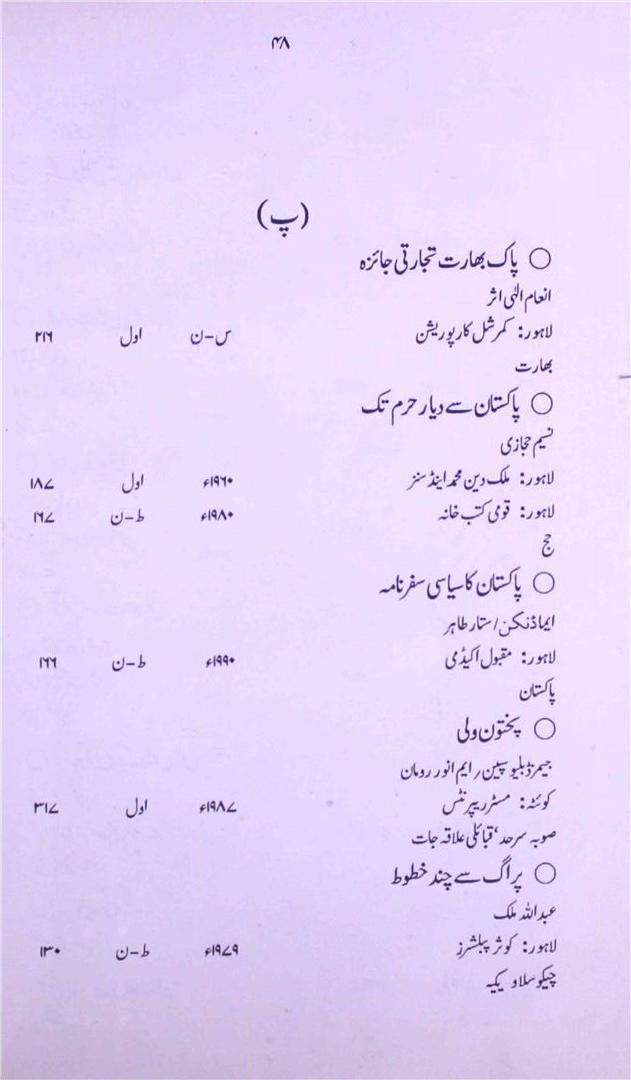 ۴۸
(پ)
○ پاک بھارت تجارتی جائزہ
انعام الٰہی اثر
لاہور: کمرشل کارپوریشن س-ن اول ۲۱۶
بھارت
○ پاکستان سے دیار حرم تک
نسیم حجازی
لاہور: ملک دین محمد اینڈ سنز ۱۹۶۰ء اول ۱۸۷
لاہور: قومی کتب خانہ ۱۹۸۰ء ط-ن ۱۶۷
حج
○ پاکستان کا سیاسی سفرنامہ
ایما ڈنکن/ستار طاہر
لاہور: مقبول اکیڈمی ۱۹۹۰ء ط-ن ۱۶۶
پاکستان
○ پختون ولی
جیمز ڈبلیو سپین/ایم انور رومان
کوئٹہ: مسٹر ریپرنٹس ۱۹۸۷ء اول ۳۱۷
صوبہ سرحد، قبائلی علاقہ جات
○ پراگ سے چند خطوط
عبداللہ ملک
لاہور: کوثر پبلشرز ۱۹۷۹ء ط-ن ۱۳۰
چیکو سلاویکیہ